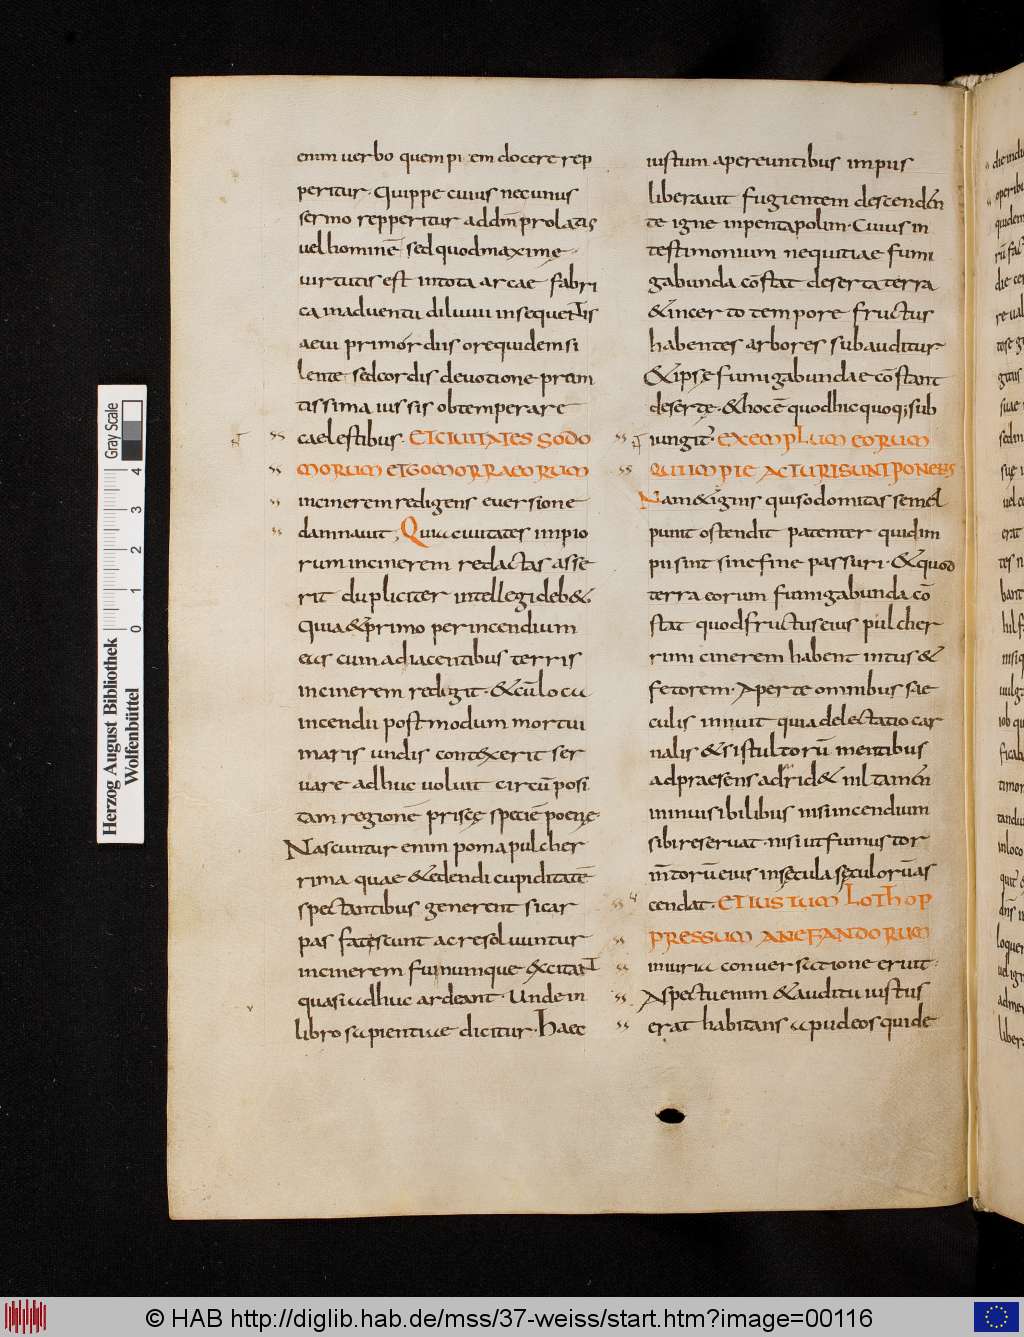 enim uerbo quempiem docere rep
peritur. Quippe cuius nec unus
sermo repperitur addm̄ prolatis
uel hominē sed quod maxime
uirtutis est intota arcae fabri
ca inaduentu diluuii insequentis
aeui primordiis ore quidem si
lente sed cordis deuotione prom
tissima iussis obtemperare
caelestibus. ET CIUITATES SODO
MORUM ET GOMORRAEORUM
incinerem redigens euersione
damnauit, Quia ciuitates impio
rum incinerem redactas asse
rit dupliciter intellegi deb&
quia & primo per incendium
eas cum adiacentibus terris
incinerem redigit. & cū loca
incendii postmodum mortui
maris undis contexerit ser
uare adhuc uoluit circū posi
tam regionē priscę speciē poenę.
Nascuntur enim poma pulcher
rima quae & edendi cupiditatē
spectantibus generent si car
pas fatescunt ac resoluuntur
incinerem fumumque excitant
quasi adhuc ardeant. Unde in
libro sapientiae dicitur. Haec
iustum apereuntibus impiis
liberauit fugientem descenden
te igne inpentapolim. Cuius in
testimonium nequitiae fumi
gabunda cōstat deserta terra
& incerto tempore fructus
habentes arbores subauditur
& ipsę fumigabundae cōstant
desertę. & hoc ē quod hic quoq; sub
iungit. EXEMPLUM EORUM
QUI IMPIE ACTURI SUNT PONENS
Nam & ignis qui sodomitas semel
punit ostendit patenter quid im
pii sint sine fine passuri. & quod
terra eorum fumigabunda cō
stat quod fructus eius pulcher
rimi cinerem habent intus &
fetorem. Aperte omnibus sae
culis innuit quia delectatio car
nalis & si stultorū mentibus
ad praesens adrid& nil tamen
inuisibilibus nisi incendium
sibi reseruat. nisi ut fumus tor
m̄torū eius insęcula sęculorū as
cendat. ET IUSTUM LOTH OP
PRESSUM A NEFANDORUM
iniuria conuersatione eruit.
Aspectu enim & auditu iustus
erat habitans apud eos qui de
Herzog August Bibliothek
Wolfenbüttel
0 1 2 3 4
Gray Scale
© HAB http://diglib.hab.de/mss/37-weiss/start.htm?image=00116